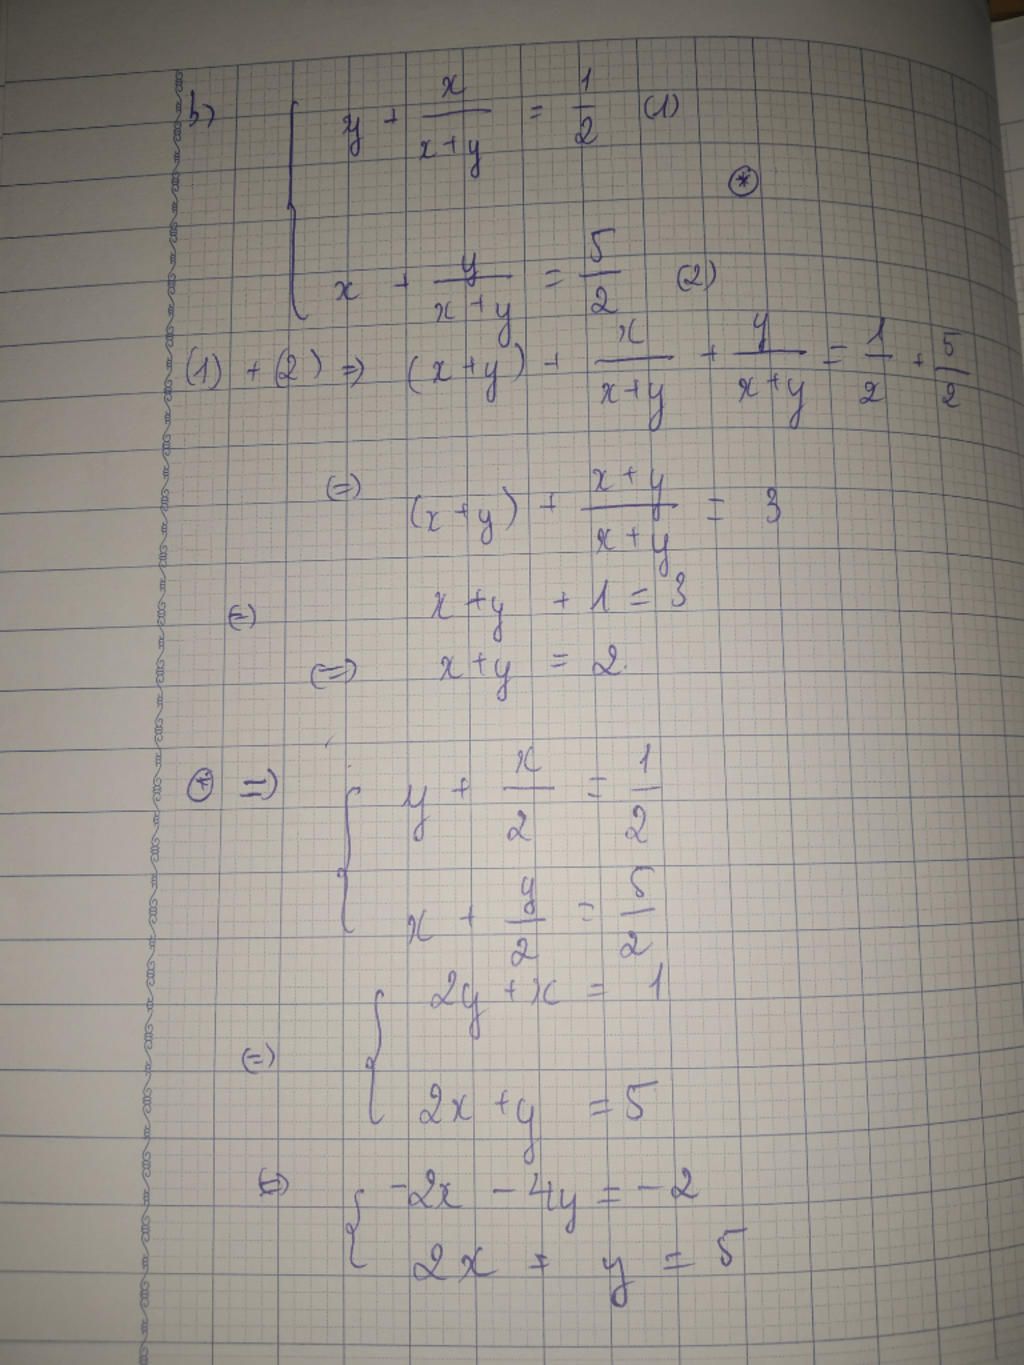 b) { y + x/(x+y) = 1/2 (1)
(*)
x + y/(x+y) = 5/2 (2)
(1) + (2) => (x+y) + x/(x+y) + y/(x+y) = 1/2 + 5/2
(=) (x+y) + (x+y)/(x+y) = 3
(=) x+y + 1 = 3
(=) x+y = 2.
(*) => { y + x/2 = 1/2
x + y/2 = 5/2
(=) { 2y + x = 1
2x + y = 5
(=) { -2x - 4y = -2
2x + y = 5